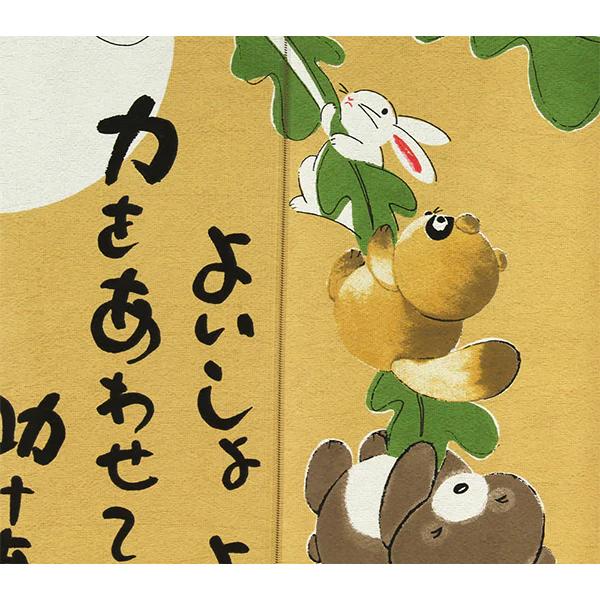 よいしょ よ
力をあわせて
助け